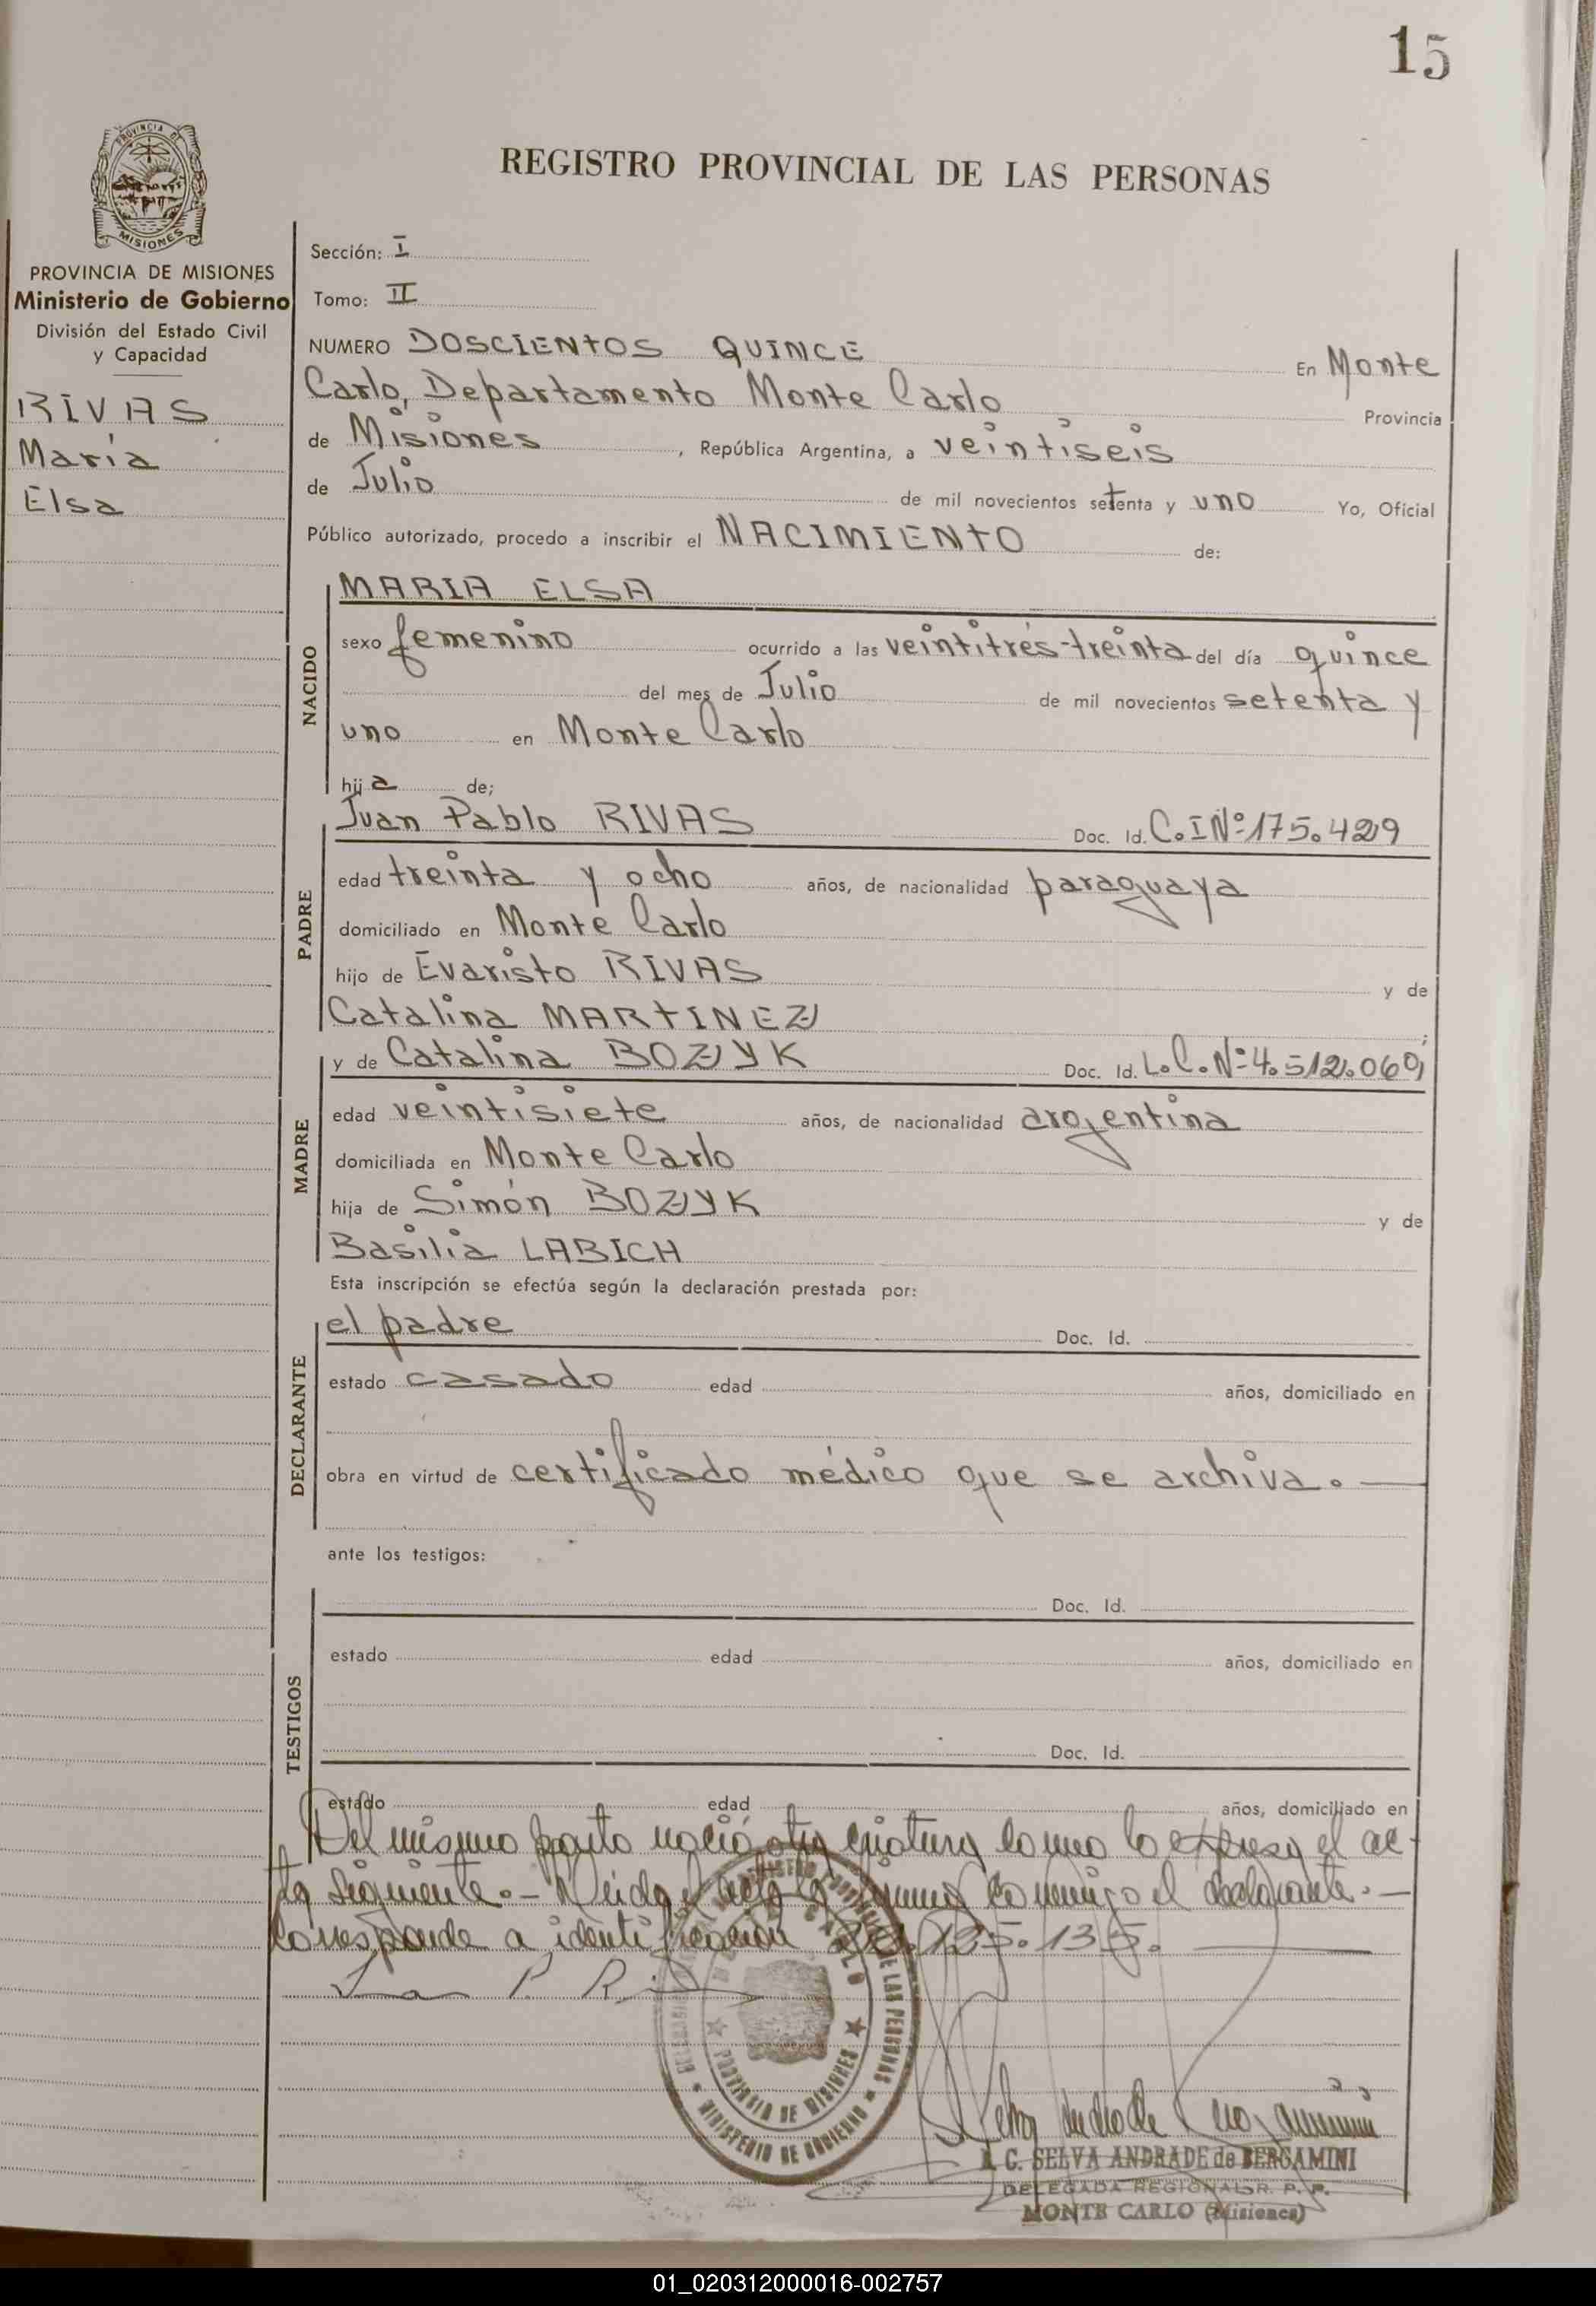 15
REGISTRO PROVINCIAL DE LAS PERSONAS
PROVINCIA DE MISIONES
Ministerio de Gobierno
División del Estado Civil
y Capacidad
RIVAS
María
Elsa
Sección: I
Tomo: II
NUMERO DOSCIENTOS QUINCE En Monte
Carlo, Departamento Monte Carlo Provincia
de Misiones, República Argentina, a veintiseis
de Julio de mil novecientos setenta y uno Yo, Oficial
Público autorizado, procedo a inscribir el NACIMIENTO de:
NACIDO
MARIA ELSA
sexo femenino ocurrido a las veintitrés-treinta del día quince
del mes de Julio de mil novecientos setenta y
uno en Monte Carlo
hija de;
PADRE
Juan Pablo RIVAS Doc. Id. C.I Nº 175.429
edad treinta y ocho años, de nacionalidad paraguaya
domiciliado en Monte Carlo
hijo de Evaristo RIVAS y de
Catalina MARTINEZ ;
MADRE
y de Catalina BOZYK Doc. Id. L.C. Nº 4.512.060;
edad veintisiete años, de nacionalidad argentina
domiciliada en Monte Carlo
hija de Simón BOZYK y de
Basilia LABICH
Esta inscripción se efectúa según la declaración prestada por:
DECLARANTE
el padre Doc. Id.
estado casado edad años, domiciliado en
obra en virtud de certificado médico que se archiva.
ante los testigos:
TESTIGOS
Doc. Id.
estado edad años, domiciliado en
Doc. Id.
estado edad años, domiciliado en
Del mismo parto nació otra criatura como lo expresa el ac-
ta siguiente.- Leida el acta la firma conmigo el declarante.-
Corresponde a identificación 135.
PROVINCIA DE MISIONES
MINISTERIO DE GOBIERNO
DE LAS PERSONAS
C. SELVA ANDRADE de BERGAMINI
DELEGADA REGIONAL R. P. P.
MONTE CARLO (Misiones)
01_020312000016-002757